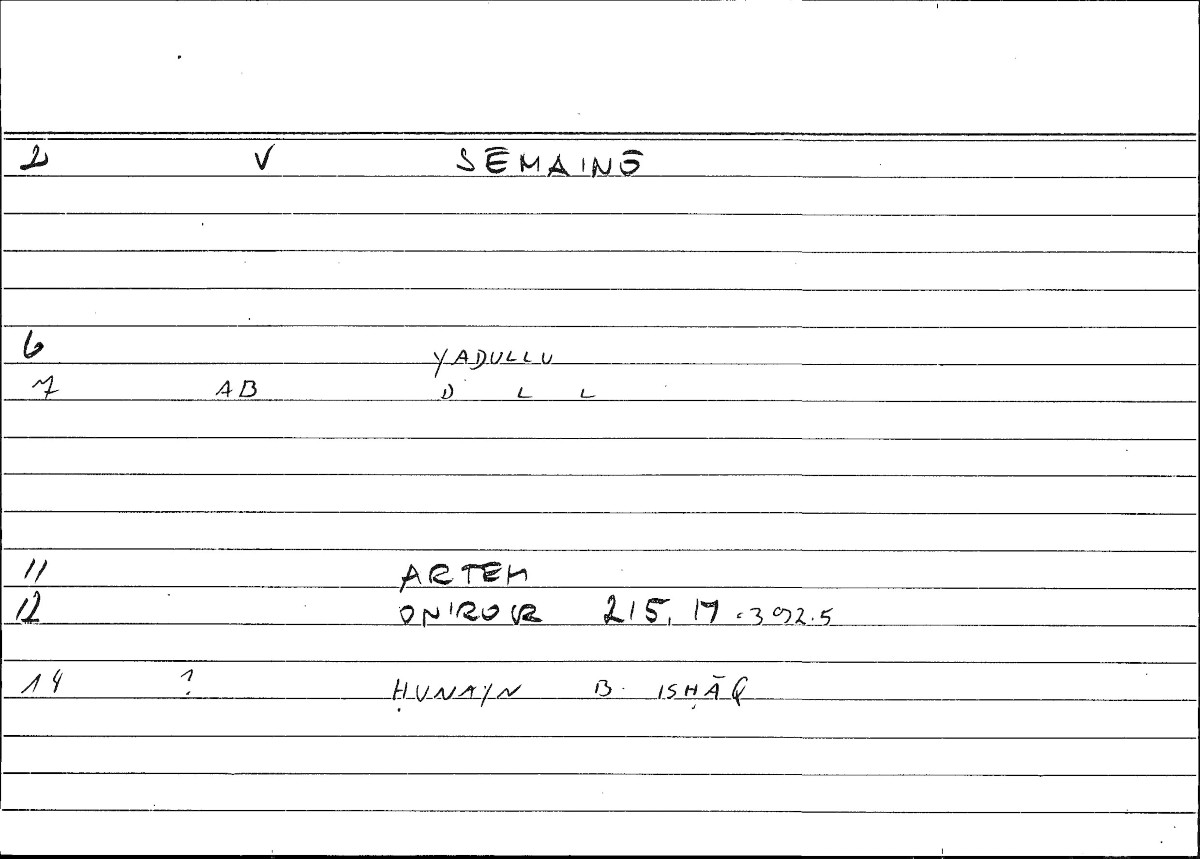 2 V SĒMAINŌ
6 YADULLU
7 AB D L L
11 ARTEM
12 ONIROKR 215, 17
14 ? ḤUNAYN B. ISḤĀQ